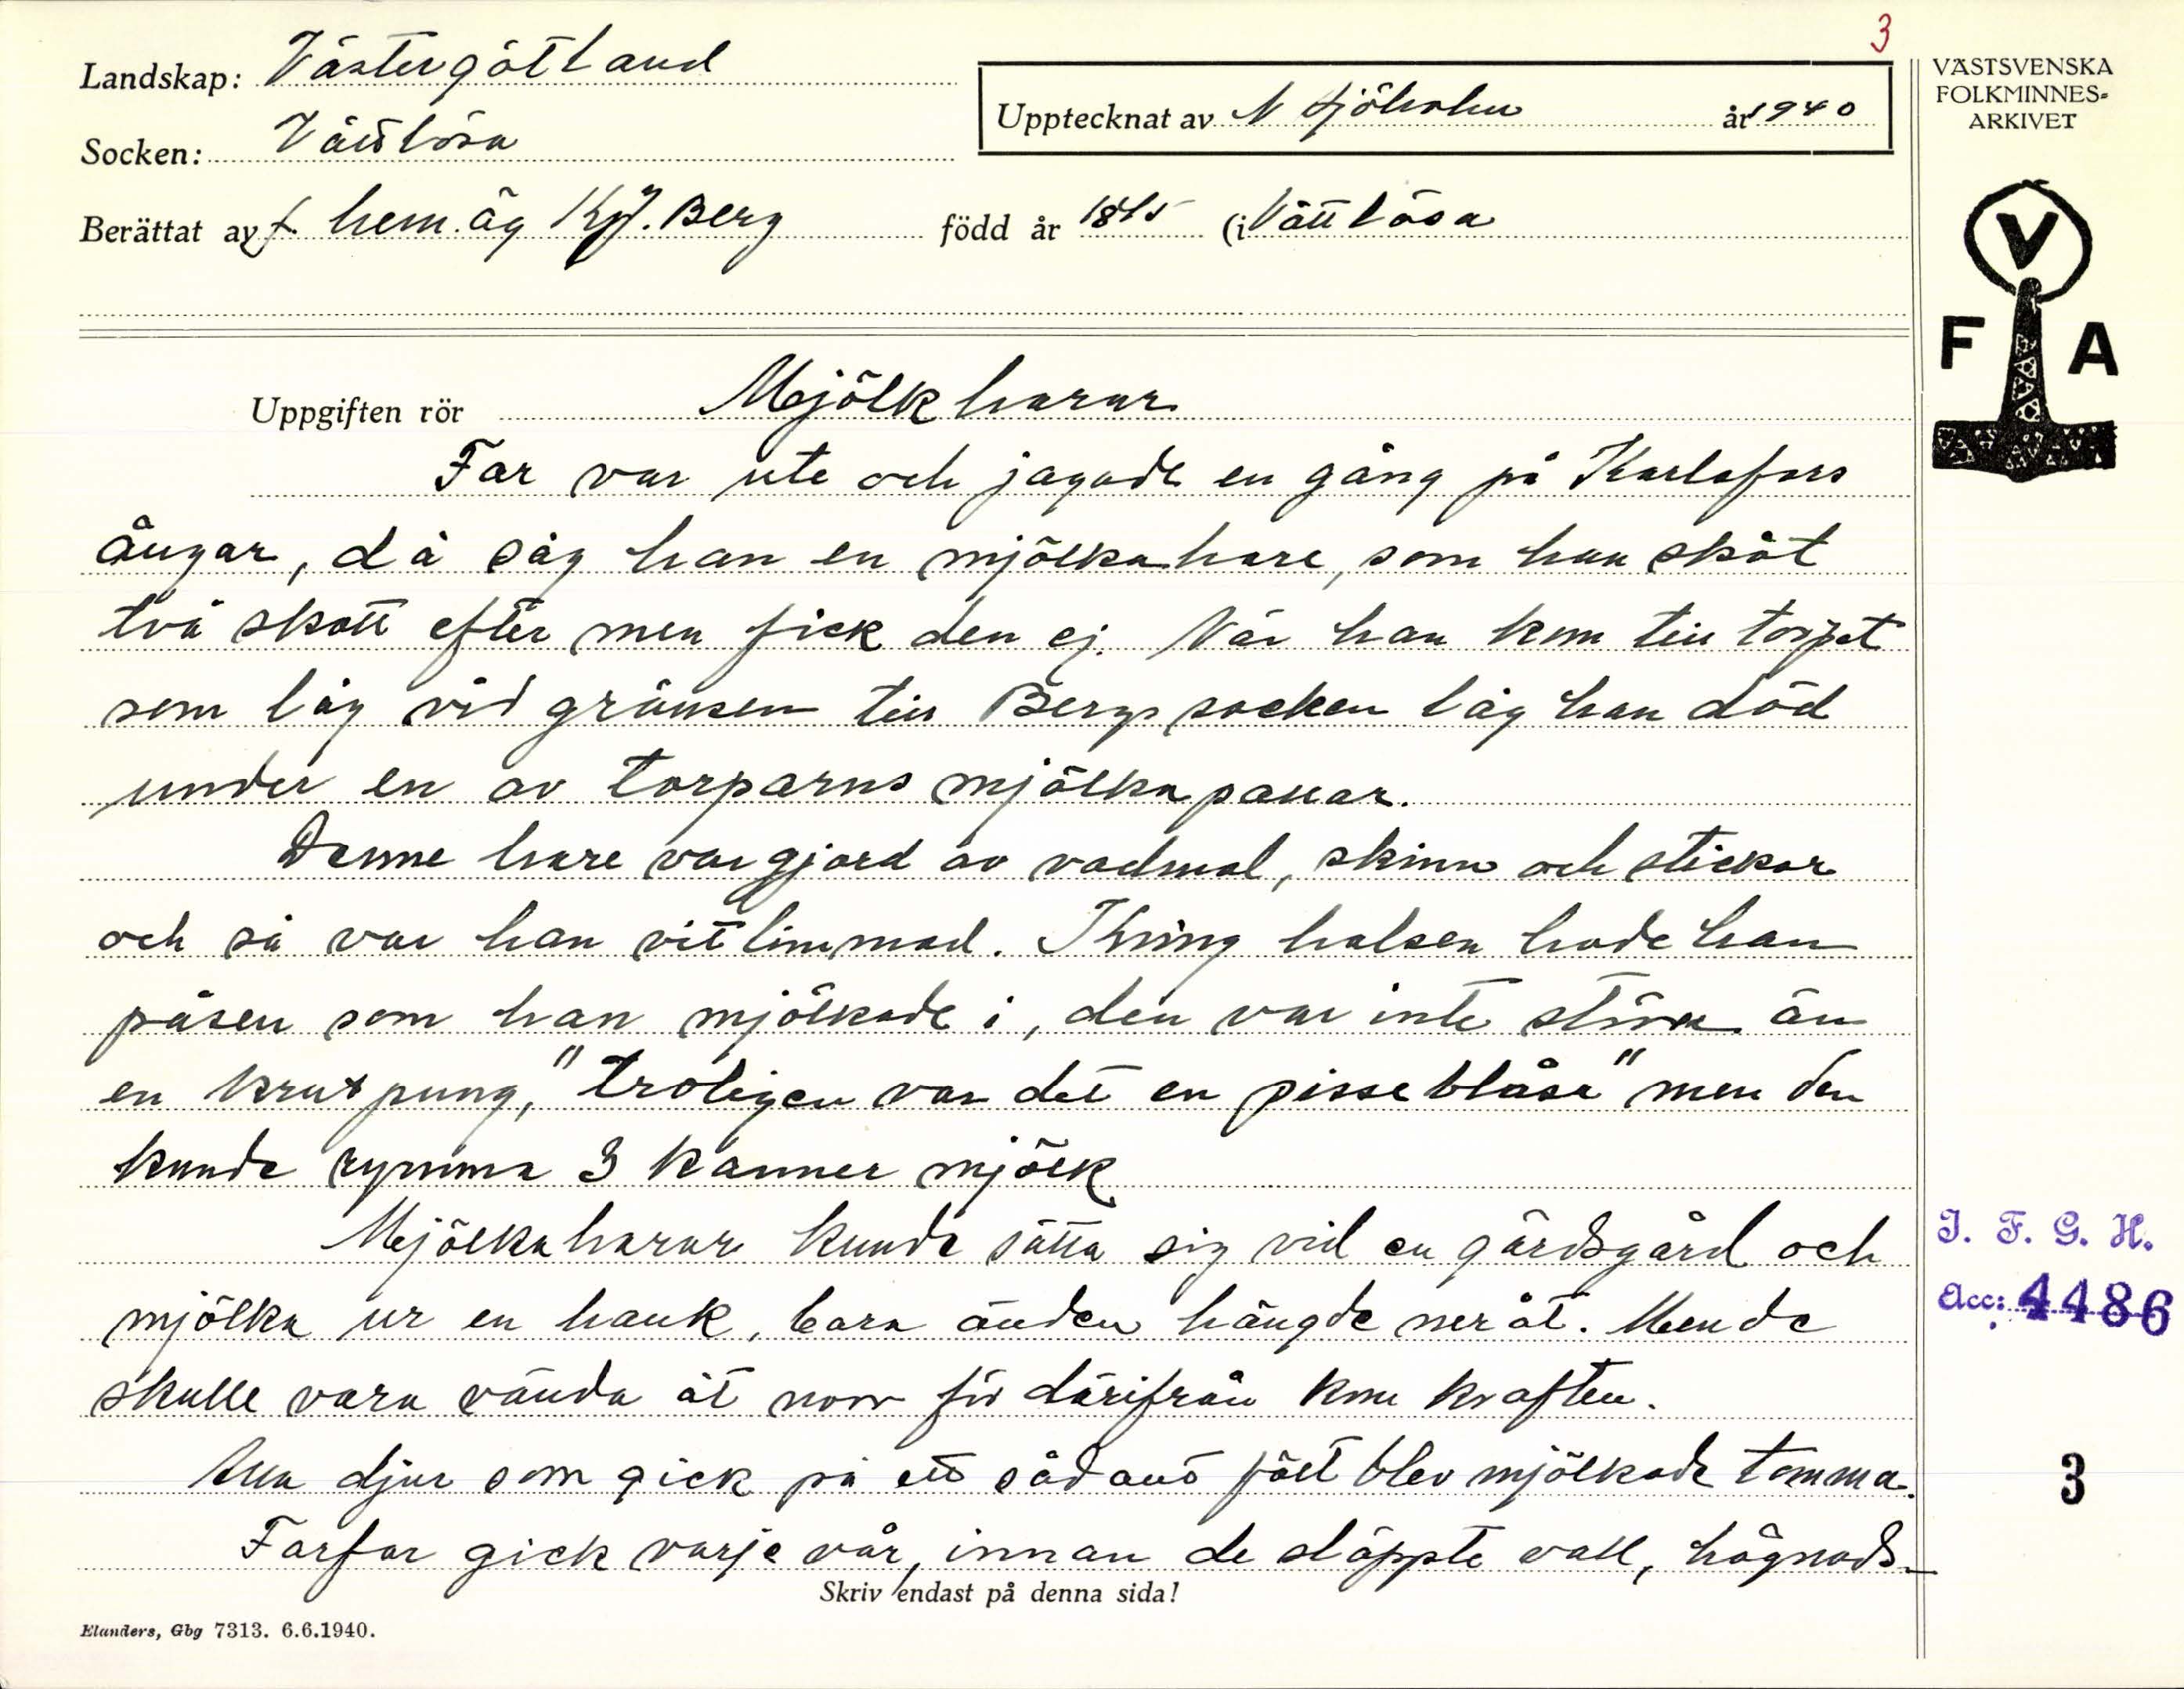 3
Landskap: Västergötland
VÄSTSVENSKA
FOLKMINNES-
ARKIVET
Upptecknat av N Sjöholm år 1940
Socken: Vättlösa
Berättat av f. hem.äg K.J. Berg född år 1865 (i Vättlösa
V
F A
Uppgiften rör Mjölkharar
Far var ute och jagade en gång på Karlsfors
ängar, då såg han en mjölkahare, som han sköt
två skott efter men fick den ej. När han kom till torpet
som låg vid gränsen till Bergs socken låg han död
under en av torparns mjölkapallar.
Denne hare var gjord av vadmal, skinn och stickor
och så var han vitlimmad. Ikring halsen hade han
påsen som han mjölkade i, den var inte större än
en krutpung, "troligen var det en pisseblåsa" men den
kunde rymma 3 kannor mjölk
Mjölkaharar kunde sätta sig vid en gärdsgård och
mjölka ur en hank, bara änden hängde neråt. Men de
skulle vara vända åt norr för därifrån kom kraften.
Alla djur som gick på ett sådant fält blev mjölkade tomma.
Farfar gick varje vår, innan de släppte vall, hägnads-
Skriv endast på denna sida!
Elanders, Gbg 7313. 6.6.1940.
I. F. G. H.
Acc: 4486
3